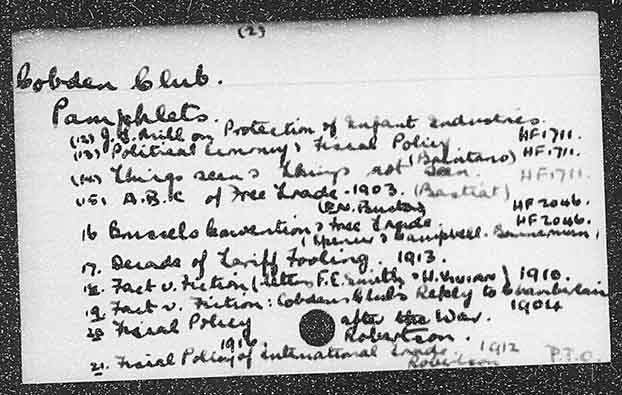 (2)
Cobden Club.
Pamphlets.
(12) J.S. Mill on Protection of Infant Industries. HF1711.
(13) Political Economy & Fiscal Policy (Brentano) HF1711.
(14) Things seen & Things not Seen. HF1711.
(15) A.B.C of Free Trade - 1903. (Bastiat)
(E.N. Buxton) HF2046.
16 Brussels Convention & Free Trade. HF2046.
(Spencer & Campbell-Bannerman)
17. Decade of Tariff Fooling. 1913.
18. Fact v. Fiction (letters F.E. Smith & H. Vivian) 1910.
19. Fact v. Fiction: Cobden Club's Reply to Chamberlain 1904
20 Fiscal Policy after the War.
1916. Robertson.
21. Fiscal Policy of International Trade 1912
Robertson P.T.O.